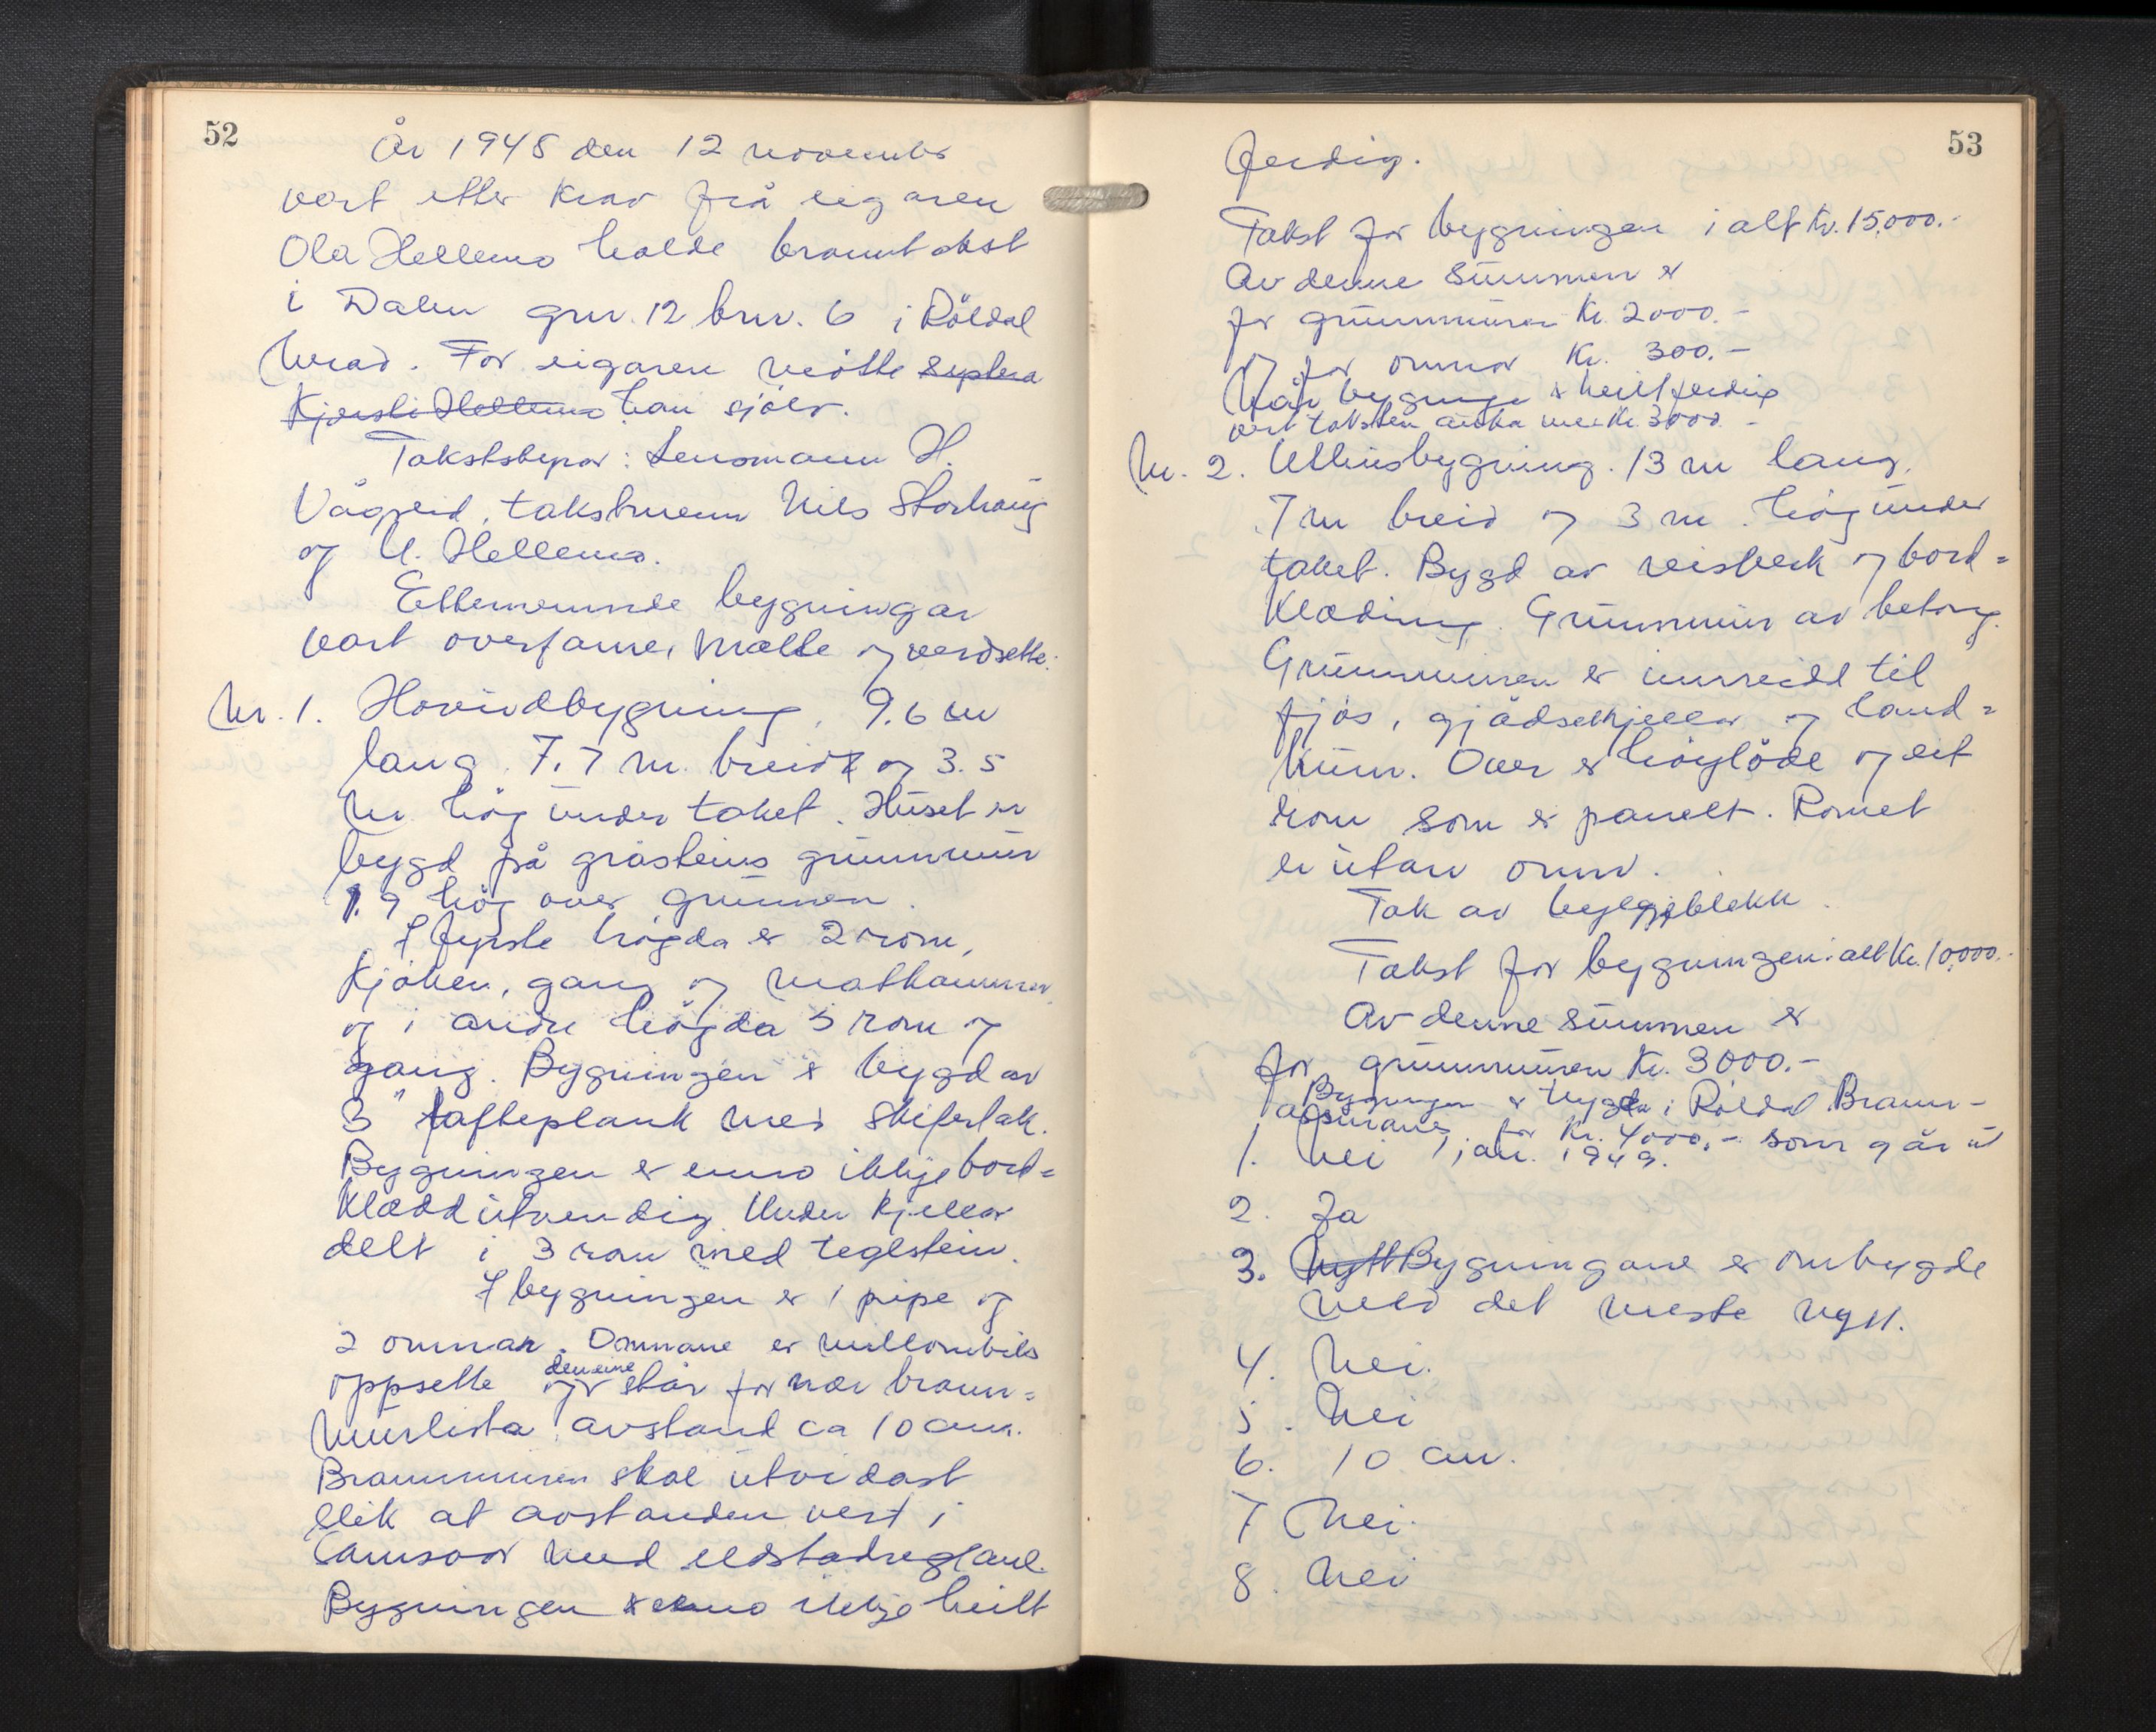 52
År 1948 den 12 november
vart etter krav frå eigaren
Ola Hellemo halde branntakst
i Dalen gnr. 12 brnr. 6 i Röldal
herad. For eigaren møtte
Kjersti Hellemo han sjölv.
Takststyrar: Lensmann H.
Vågseid, takstmenn Nils Storhaug
og N. Hellemo.
Etternemnde bygningar
vart overfarne, målte og verdsette:
Nr. 1. Hovudbygning, 9.6 m
lang 7.7 m. breid og 3.5
m hög under taket. Huset er
bygd på gråsteins grunnmur
1.9 hög over grunnen.
I fyrste högda er 2 rom,
kjöken, gang og matkammer
og i andre högda 3 rom og
gang. Bygningen er bygd av
3" lafteplank med skifertak.
Bygningen er enno ikkje bord=
klædd utvendig. Under kjellar
delt i 3 rom med teglstein.
I bygningen er 1 pipe og
2 omnar. Omnane er mellombils
oppsette og den eine står for nær brann=
murlista, avstand ca 10 cm.
Brannmuren skal utvidast
slik at avstanden vert i
samsvar med eldstadreglane.
Bygningen er enno ikkje heilt
53
ferdig.
Takst for bygningen i alt kr. 15.000.-
Av denne summen er
for grunnmuren kr. 2000.-
og for omnar kr. 300.-
Når bygningen er heilt ferdig
vert taksten auka med kr. 3000.-
Nr. 2. Uthusbygning. 13 m lang,
7 m breid og 3 m. hög under
taket. Bygd av reisverk og bord=
klæding. Grunnmur av betong.
Grunnmuren er innreidd til
fjös, gjödselkjellar og land=
kum. Over er höylöde og eit
rom som er panelt. Romet
er utan omn.
Tak av bylgjeblekk.
Takst for bygningen i alt kr. 10.000.-
Av denne summen er
for grunnmuren kr. 3000.-
Bygningen er trygda i Röldal Brann-
assurance for kr. 4000.- som går ut
1. Nei 1 jan. 1949.
2. Ja
3. Nytt Bygningane er ombygde
med det meste nytt.
4. Nei.
5. Nei
6. 10 cm.
7 Nei.
8. Nei